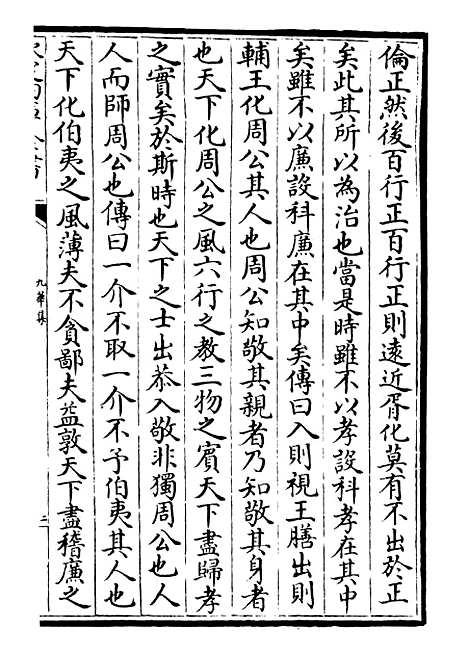 倫正然後百行正百行正則遠近胥化莫有不出於正
矣此其所以為治也當是時雖不以孝設科孝在其中
矣雖不以廉設科廉在其中矣傳曰入則視王膳出則
輔王化周公其人也周公知敬其親者乃知敬其身者
也天下化周公之風六行之教三物之賓天下盡歸孝
之實矣於斯時也天下之士出恭入敬非獨周公也人
人而師周公也傳曰一介不取一介不予伯夷其人也
天下化伯夷之風薄夫不貪鄙夫益敦天下盡稽廉之
九華集
三